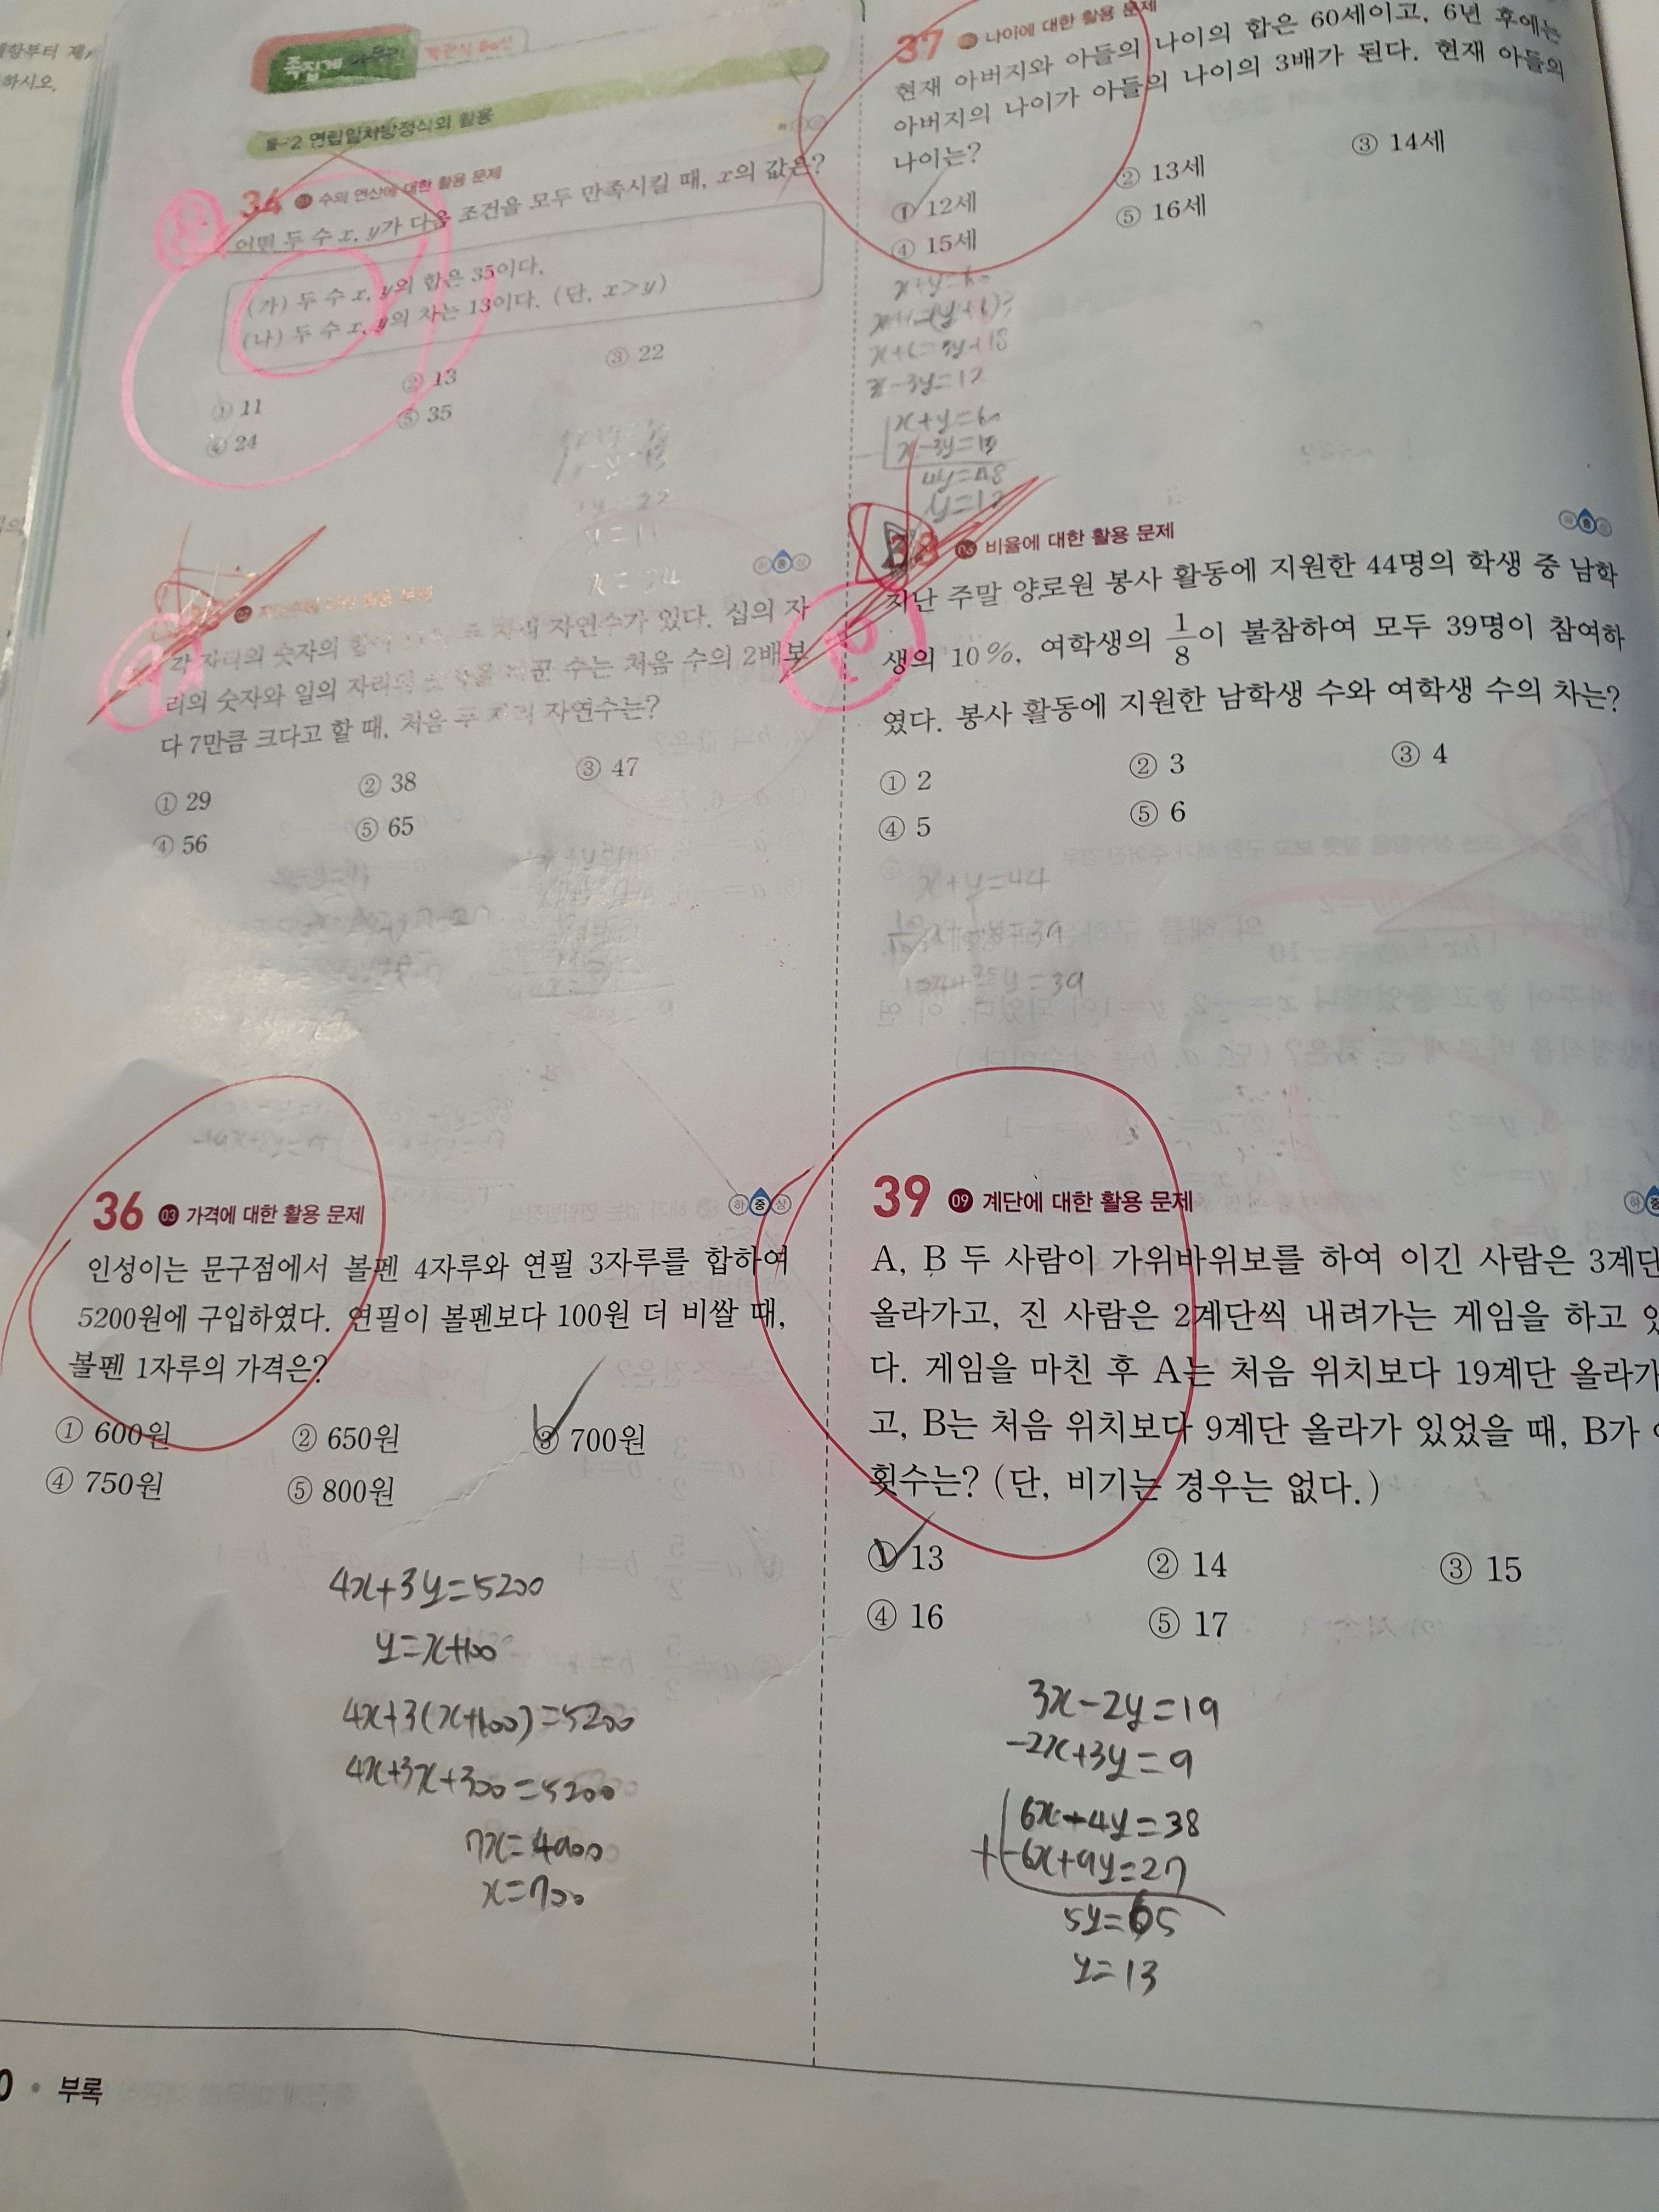 족집게
객관식 80선
Ⅲ-2 연립일차방정식의 활용
34 수의 연산에 대한 활용 문제
어떤 두 수 x, y가 다음 조건을 모두 만족시킬 때, x의 값은?
(가) 두 수 x, y의 합은 35이다.
(나) 두 수 x, y의 차는 13이다. (단, x>y)
① 11
② 13
③ 22
④ 24
⑤ 35
x=24
02
각 자리의 숫자의 자연수가 있다. 십의 자
리의 숫자와 일의 자리의 수는 처음 수의 2배보
다 7만큼 크다고 할 때, 처음 두 자리 자연수는?
① 29
② 38
③ 47
④ 56
⑤ 65
36 03 가격에 대한 활용 문제
하 중 상
인성이는 문구점에서 볼펜 4자루와 연필 3자루를 합하여
5200원에 구입하였다. 연필이 볼펜보다 100원 더 비쌀 때,
볼펜 1자루의 가격은?
① 600원
② 650원
③ 700원
④ 750원
⑤ 800원
4x+3y=5200
y=x+100
4x+3(x+100)=5200
4x+3x+300=5200
7x=4900
x=700
부록
37 나이에 대한 활용 문제
현재 아버지와 아들의 나이의 합은 60세이고, 6년 후에는
아버지의 나이가 아들의 나이의 3배가 된다. 현재 아들의
나이는?
① 12세
② 13세
③ 14세
④ 15세
⑤ 16세
x+y=60
x+6=(y+6)3
x+6=3y+18
x-3y=12
x+y=60
x-3y=12
4y=48
y=12
38 비율에 대한 활용 문제
지난 주말 양로원 봉사 활동에 지원한 44명의 학생 중 남학
생의 10%, 여학생의 1/8이 불참하여 모두 39명이 참여하
였다. 봉사 활동에 지원한 남학생 수와 여학생 수의 차는?
① 2
② 3
③ 4
④ 5
⑤ 6
x+y=44
39 09 계단에 대한 활용 문제
하 중
A, B 두 사람이 가위바위보를 하여 이긴 사람은 3계단
올라가고, 진 사람은 2계단씩 내려가는 게임을 하고 있
다. 게임을 마친 후 A는 처음 위치보다 19계단 올라가
고, B는 처음 위치보다 9계단 올라가 있었을 때, B가
횟수는? (단, 비기는 경우는 없다.)
① 13
② 14
③ 15
④ 16
⑤ 17
3x-2y=19
-2x+3y=9
6x-4y=38
+ -6x+9y=27
5y=65
y=13